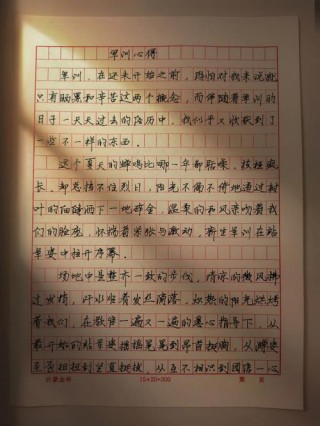 军训心得
军训，在还未开始之前，恐怕对我来说就
只有晒黑和辛苦这两个概念，而伴随着军训的
日子一天天过去的经历中，我们又收获到了
一些不一样的东西。
这个夏天的蝉鸣比哪一年都聒噪，枝桠疯
长，却总挡不住烈日，阳光不偏不倚地透过树
叶的间隙洒下一地碎金，温柔的和风亲吻着我
们的脸庞，怀揣着紧张与激动，新生军训在站
军姿中拉开序幕。
场地中是整齐一致的步伐，清凉的微风拂
过发梢，汗水顺着发丝滴落，炽热的阳光烘烤
着我们，在教官一遍又一遍的悉心指导下，从
最开始的站军姿摇摇晃晃到昂首挺胸，从蹲姿
到坐直挺拔，从互不相识到团结一心
15×20=300
第 页